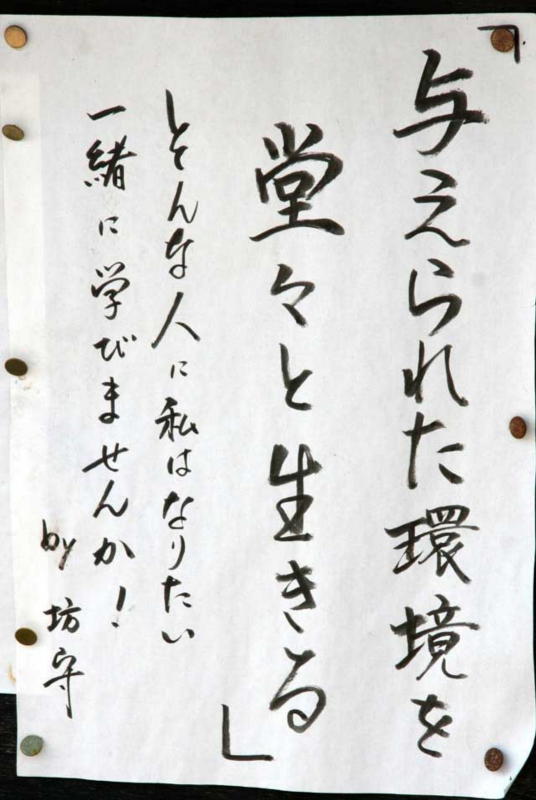 「与えられた環境を
堂々と生きる」
そんな人に私はなりたい
一緒に学びませんか！
by 坊守